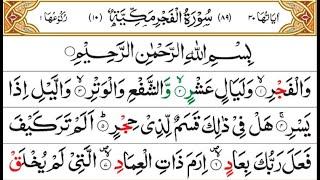 اٰیَاتُهَا ۳۰ (۸۹) سُوْرَةُ الْفَجْرِ مَكِّیَّةٌ (۱۰) رُكُوْعُهَا ۱
بِسْمِ اللّٰهِ الرَّحْمٰنِ الرَّحِیْمِ
وَالْفَجْرِ ۙ۱ وَلَیَالٍ عَشْرٍ ۙ۲ وَّالشَّفْعِ وَالْوَتْرِ ۙ۳ وَالَّیْلِ اِذَا
یَسْرِ ۚ۴ هَلْ فِیْ ذٰلِكَ قَسَمٌ لِّذِیْ حِجْرٍ ؕ۵ اَلَمْ تَرَ كَیْفَ
فَعَلَ رَبُّكَ بِعَادٍ ۪ۙ۶ اِرَمَ ذَاتِ الْعِمَادِ ۪ۙ۷ الَّتِیْ لَمْ یُخْلَقْ